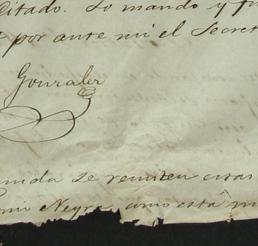 Citado. Lo mando y fir
por ante mi el Secret
Gonzalez
se remiten
mi Negra, como está